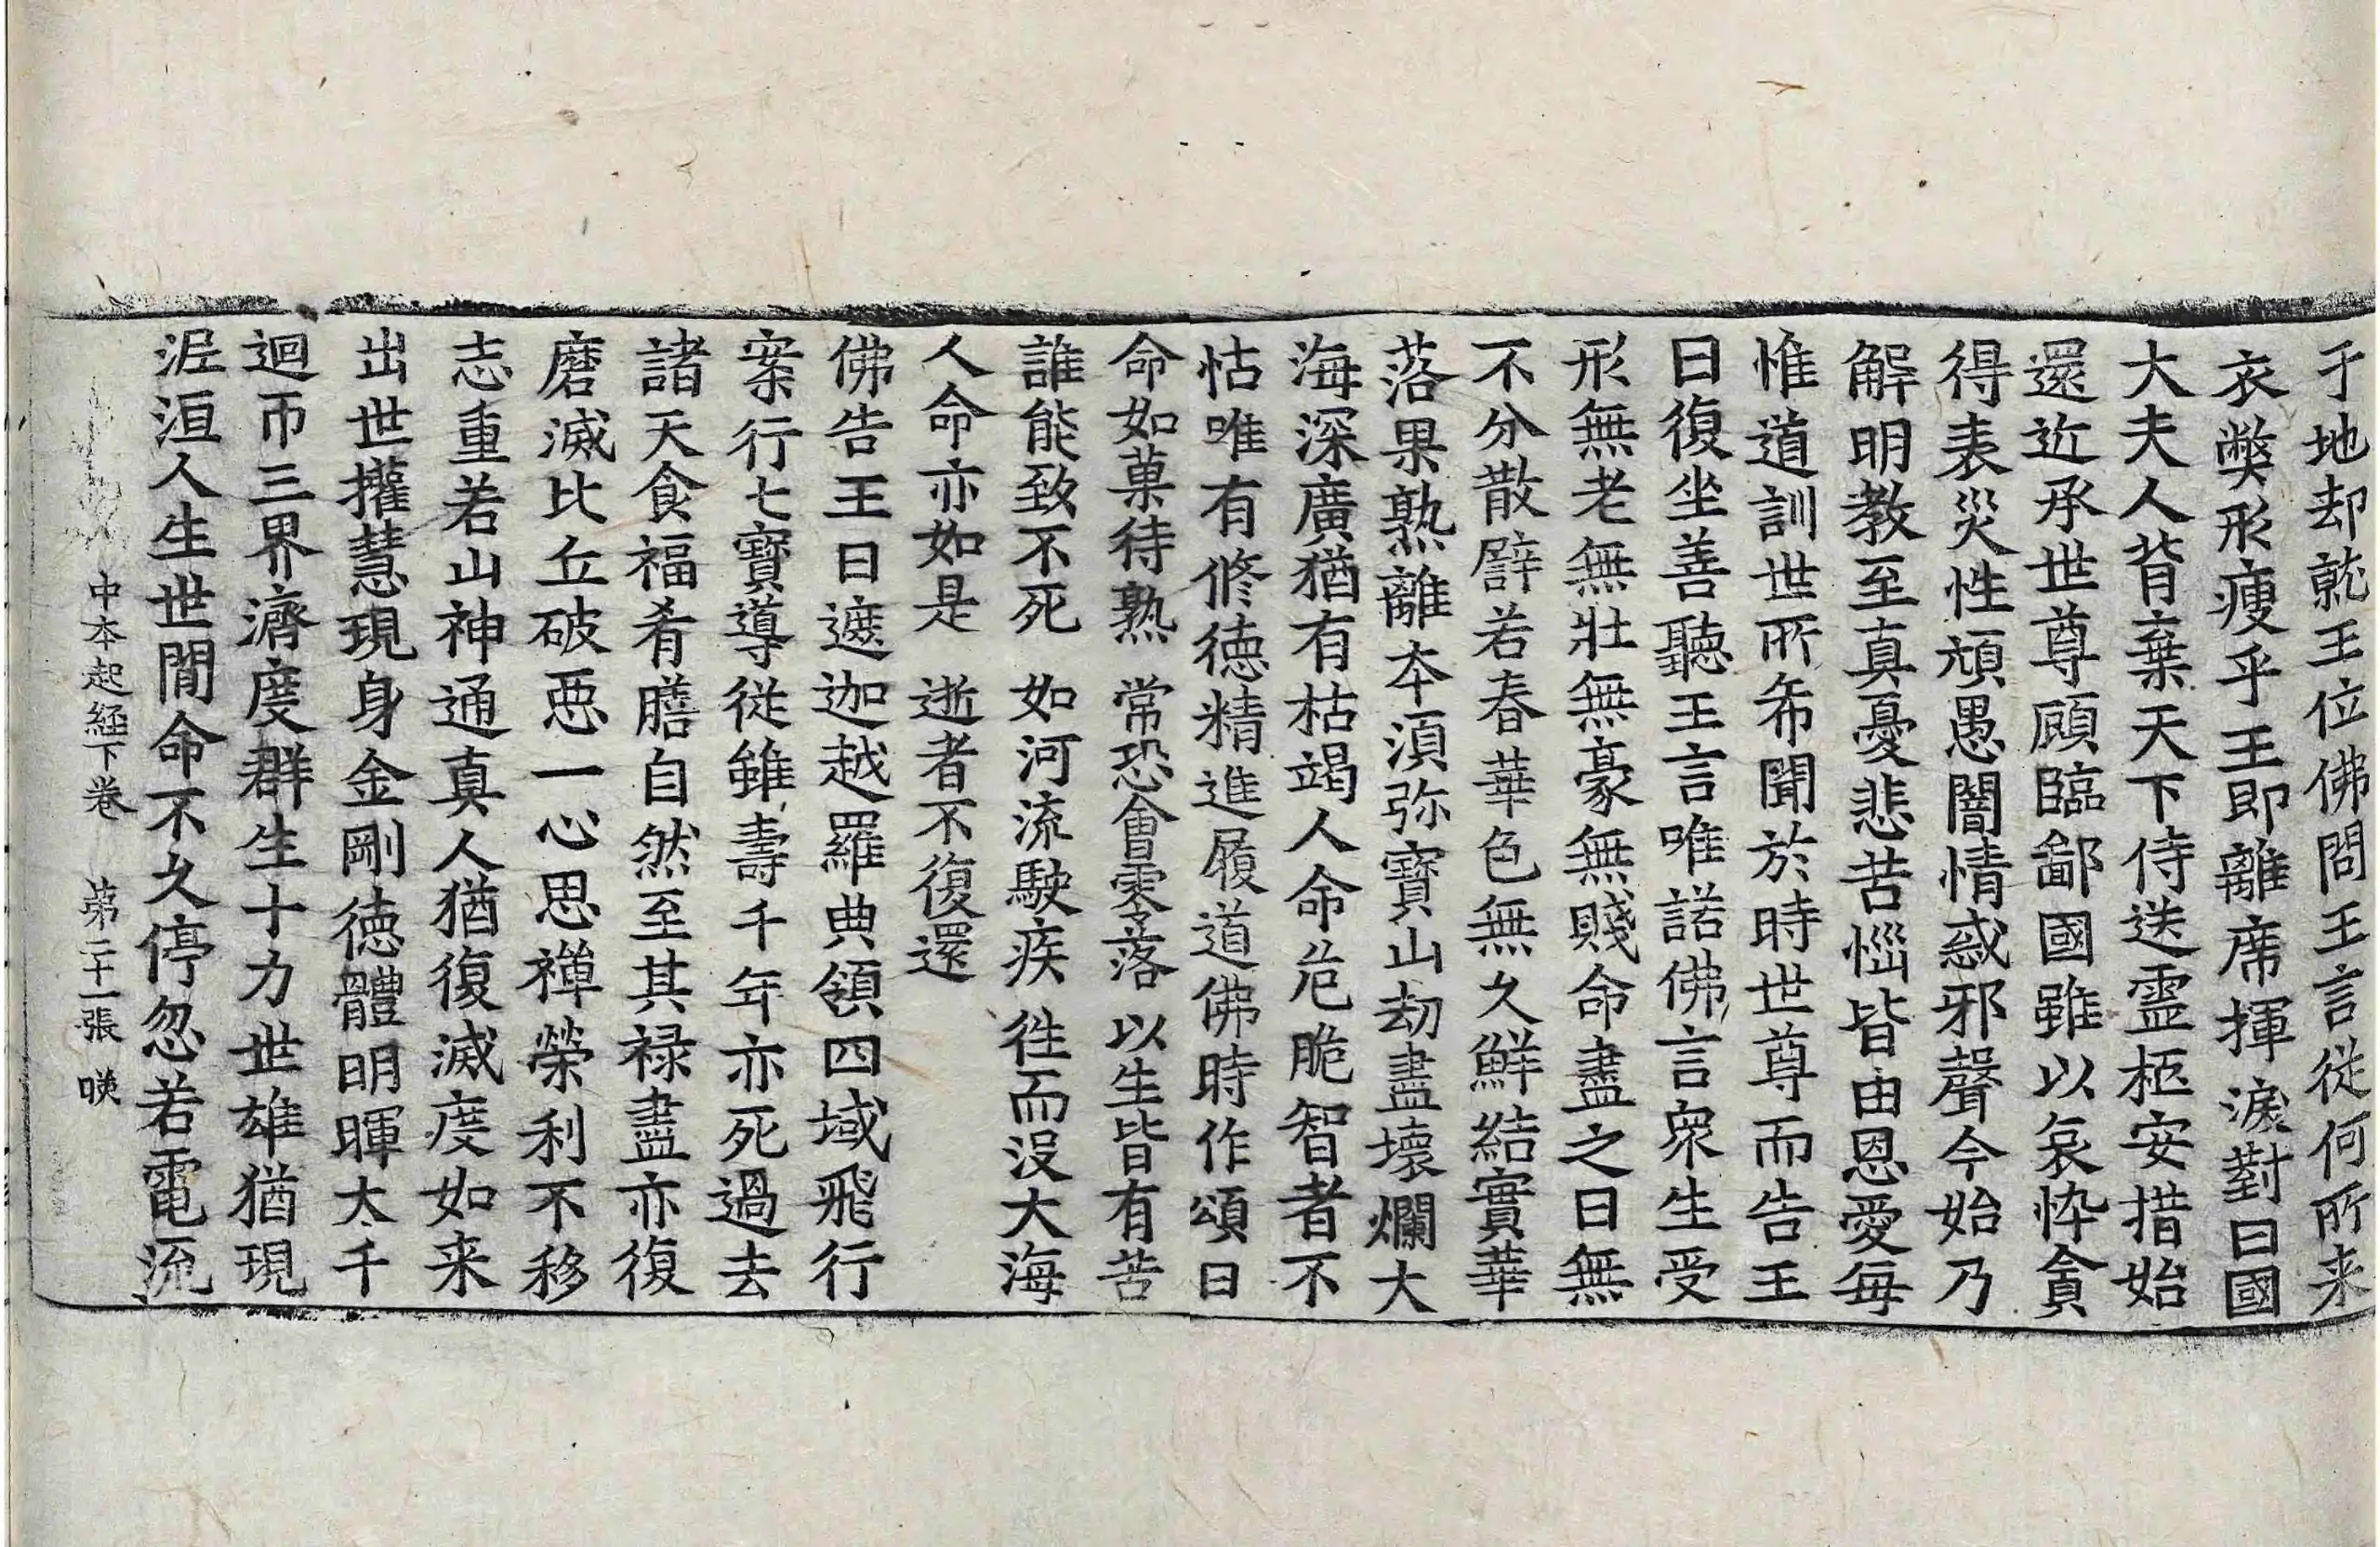 于地却就王位佛問王言從何所来
衣弊形瘦乎王即離席揮淚對曰國
大夫人背棄天下侍送靈柩安措始
還近承世尊顧臨鄙國雖以哀忰貪
得表災性頑愚闇情惑邪聲今始乃
解明教至真憂悲苦惱皆由恩愛每
惟道訓世所希聞於時世尊而告王
曰復坐善聽王言唯諾佛言衆生受
形無老無壯無豪無賤命盡之日無
不分散譬若春華色無久鮮結實華
落果熟離本湏弥寶山劫盡壞爛大
海深廣猶有枯竭人命危脆智者不
怙唯有修德精進履道佛時作頌曰
命如菓待熟　常恐會零落　以生皆有苦
誰能致不死　如河流駛疾　徃而没大海
人命亦如是　逝者不復還
佛告王曰遮迦越羅典領四域飛行
案行七寶導從雖壽千年亦死過去
諸天食福肴膳自然至其禄盡亦復
磨滅比丘破惡一心思禪榮利不移
志重若山神通真人猶復滅度如来
出世擢慧現身金剛德體明暉大千
迴帀三界濟度群生十力世雄猶現
泥洹人生世間命不久停忽若電流
中本起經下卷　第二十一張　暎